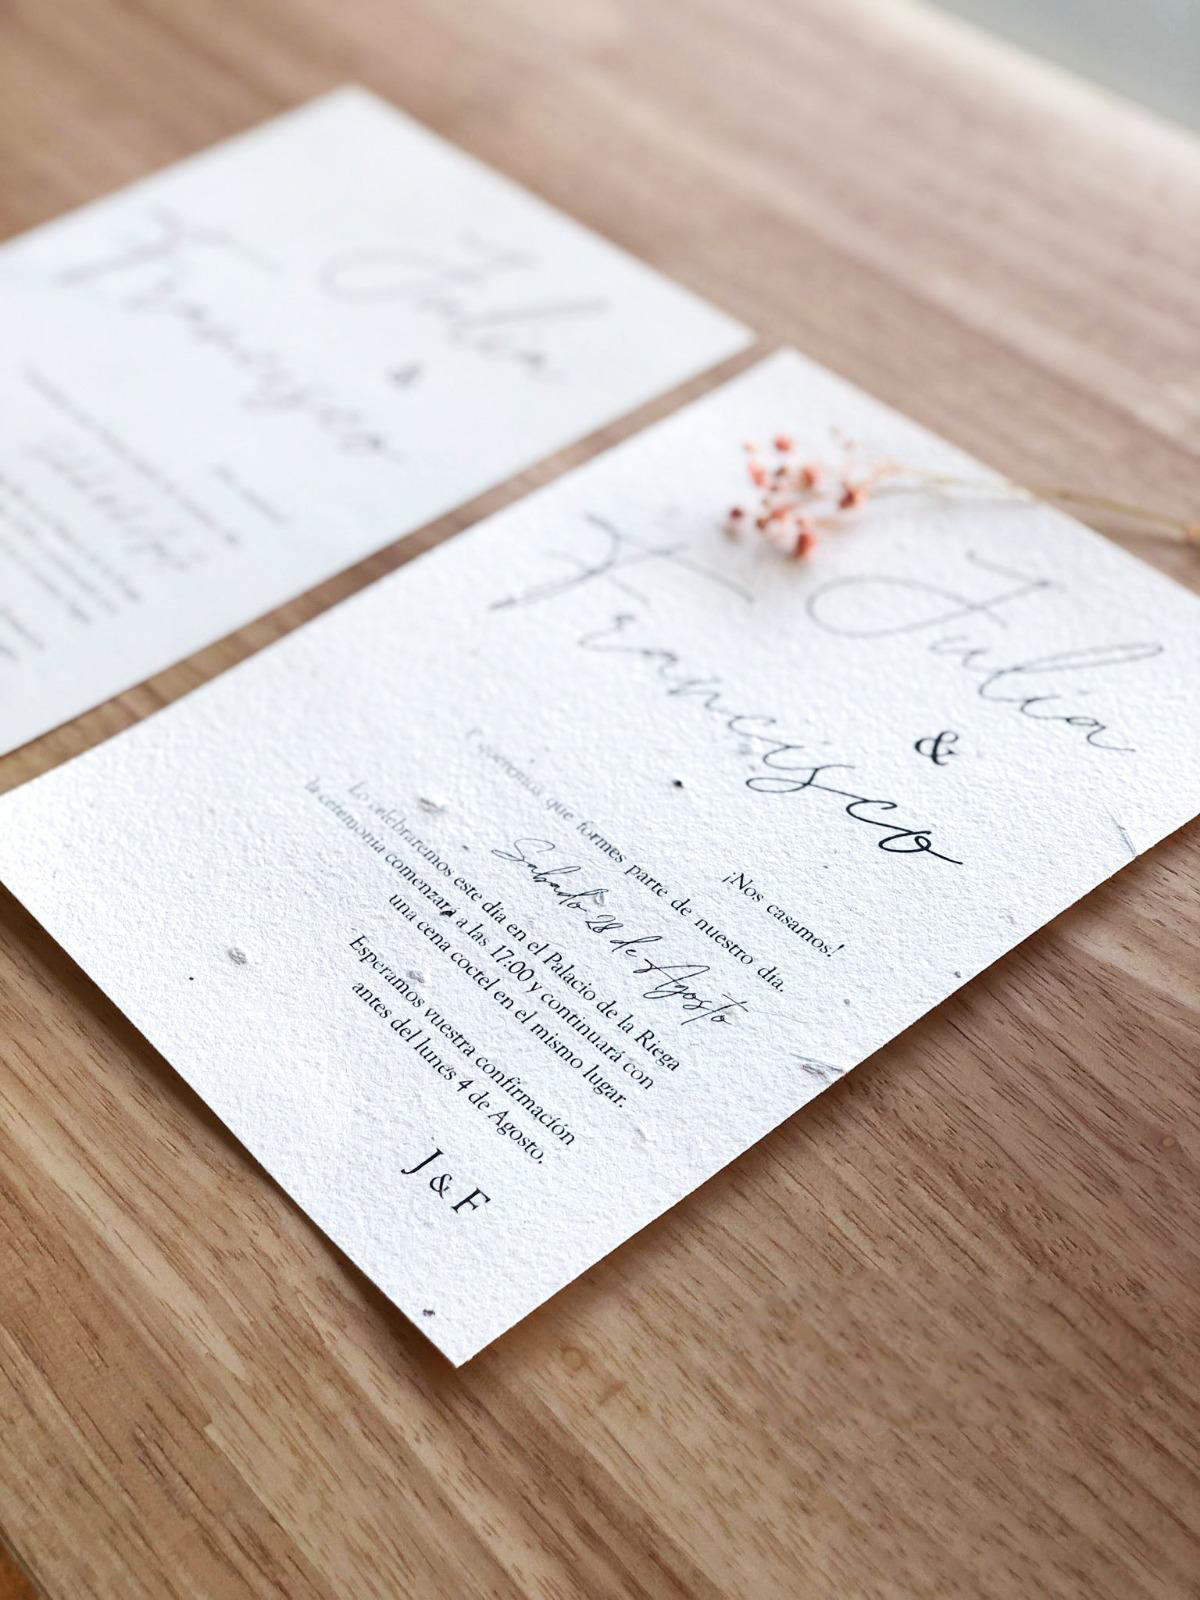 Julia
&
Francisco
¡Nos casamos!
Y queremos que formes parte de nuestro día.
Sabado 28 de Agosto
Lo celebraremos este día en el Palacio de la Riega
la ceremonia comenzará a las 17:00 y continuará con
una cena coctel en el mismo lugar.
Esperamos vuestra confirmación
antes del lunes 4 de Agosto.
J & F
Julia
&
Francisco